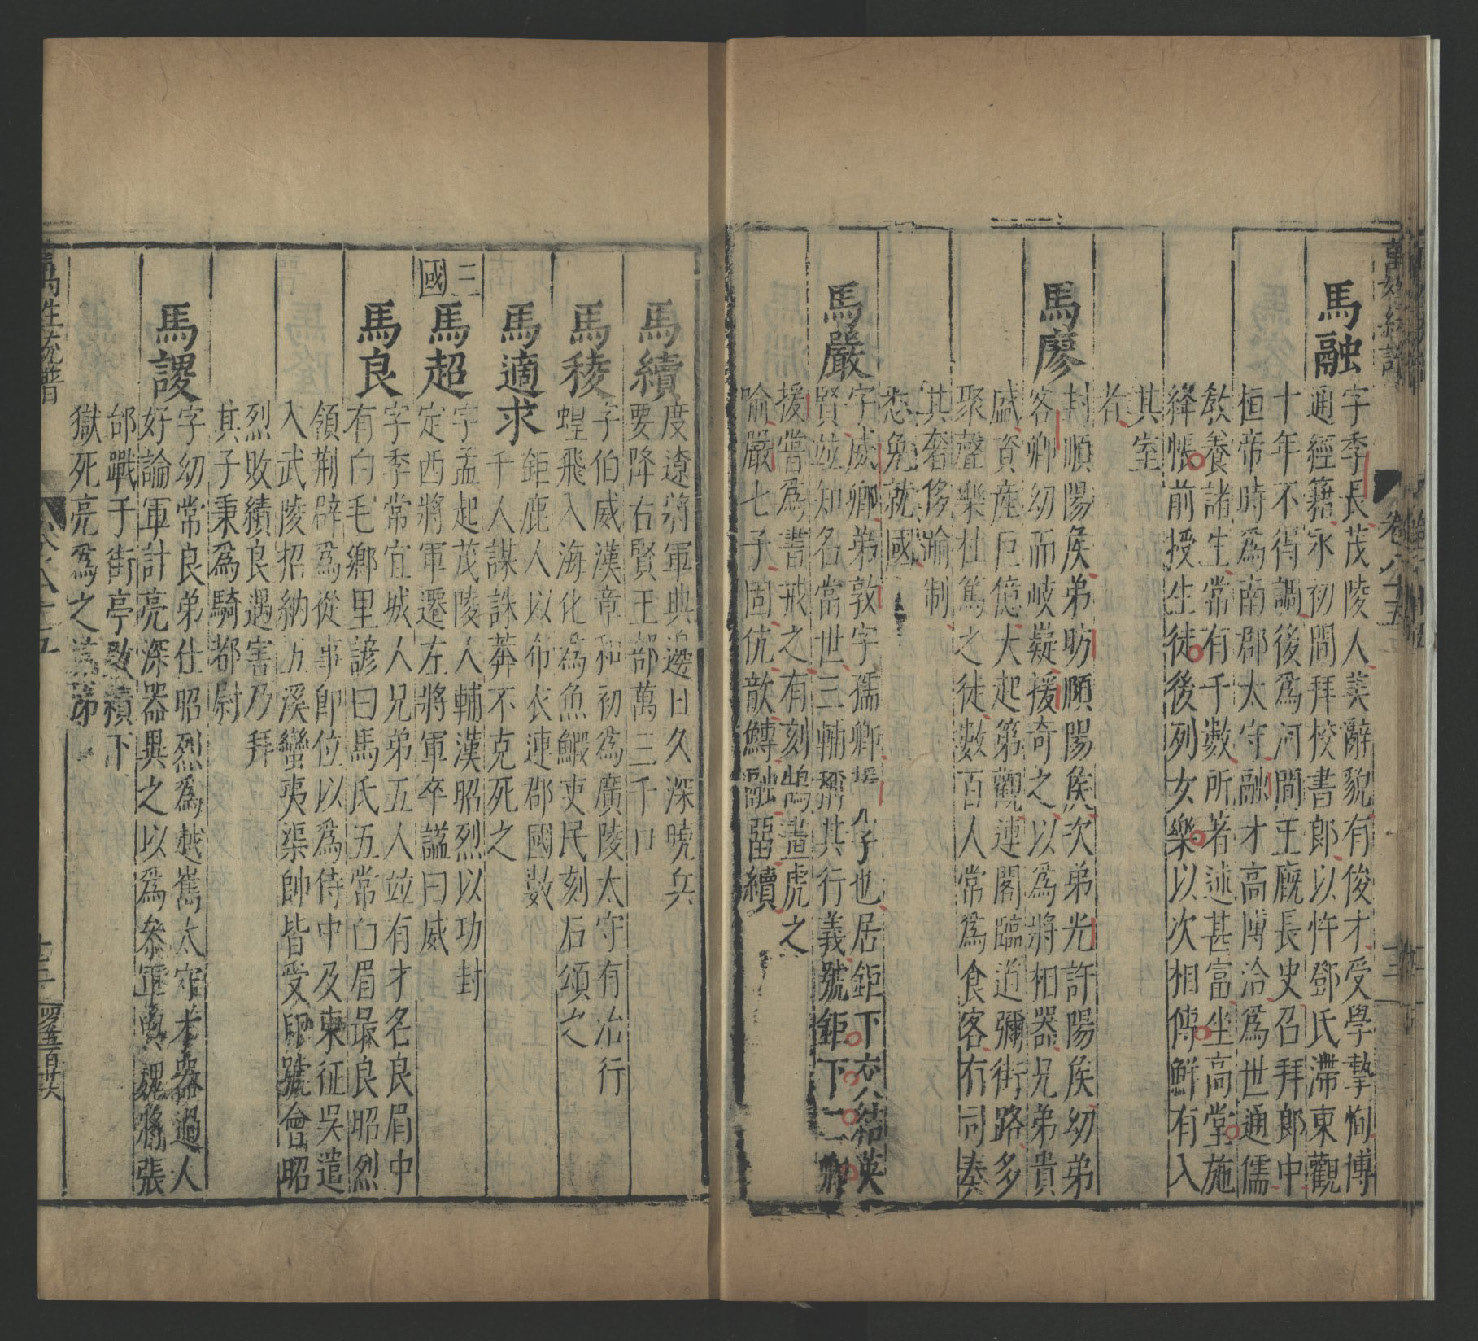 馬融
字季長茂陵人美辭貌有俊才受學摯恂博
通經籍永初間拜校書郎以忤鄧氏滯東觀
十年不得調後為河間王厩長史召拜郎中
桓帝時為南郡太守融才高博洽為世通儒
教養諸生常有千數所著述甚富坐高堂施
絳帳前授生徒後列女樂以次相傳鮮有入
其室
者
馬廖
封順陽侯弟昉順陽侯次弟光許陽侯幼弟
客卿幼而岐嶷援奇之以為將相器兄弟貴
盛資產巨億大起第觀連閣臨道彌街路多
聚聲樂
之徒數百人常為食客
其奢侈踰制
免就國
馬嚴
字威卿弟敦字孺卿
子也居鉅下
賢竝知名當世三輔稱其行義號鉅下二卿
援嘗為書戒之有刻鵠畫虎之
喻嚴七子固伉歆鱄融留續
馬續
度遼將軍典邊日久深曉兵
要降右賢王部萬三千口
馬稜
字伯威漢章和初為廣陵太守有治行
蝗飛入海化為魚鰕吏民刻石頌之
馬適求
鉅鹿人以布衣連郡國數
千人謀誅莽不克死之
三國
馬超
字孟起茂陵人輔漢昭烈以功封
定西將軍遷左將軍卒謚曰威
馬良
字季常宜城人兄弟五人竝有才名良眉中
有白毛鄉里諺曰馬氏五常白眉最良昭烈
領荊辟為從事即位以為侍中及東征吳遣
入武陵招納五溪蠻夷渠帥皆受印號會昭
烈敗績良遇害乃拜
其子秉為騎都尉
馬謖
字幼常良弟仕昭烈為越嶲太守才器過人
好論軍計亮深器異之以為參軍與魏將張
郃戰于街亭敗績下
獄死亮為之
萬姓統譜
卷八十五